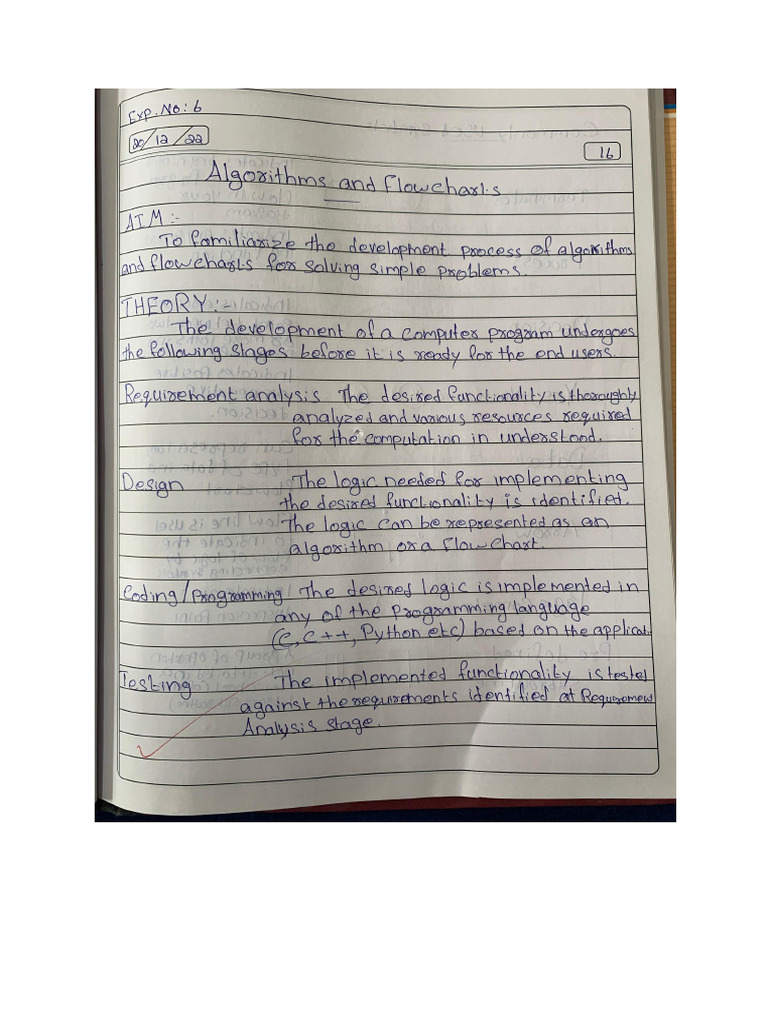 Exp. No: 6
20/12/22
16
Algorithms and Flowcharts
AIM :-
To familiarize the development process of algorithms
and flowcharts for solving simple problems.
THEORY :-
The development of a computer program undergoes
the following stages before it is ready for the end users.
Requirement analysis The desired functionality is thoroughly
analyzed and various resources required
for the computation in understood.
Design The logic needed for implementing
the desired functionality is identified.
The logic can be represented as an
algorithm or a flowchart.
Coding/Programming The desired logic is implemented in
any of the programming language
(C, C++, Python etc) based on the applicat.
Testing The implemented functionality is tested
against the requirements identified at Requirement
Analysis stage.